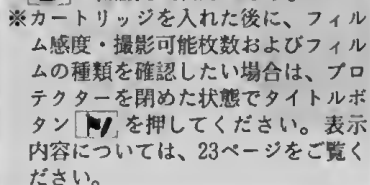 ※カートリッジを入れた後に、フィル
ム感度・撮影可能枚数およびフィル
ムの種類を確認したい場合は、プロ
テクターを閉めた状態でタイトルボ
タン を押してください。表示
内容については、23ページをご覧く
ださい。